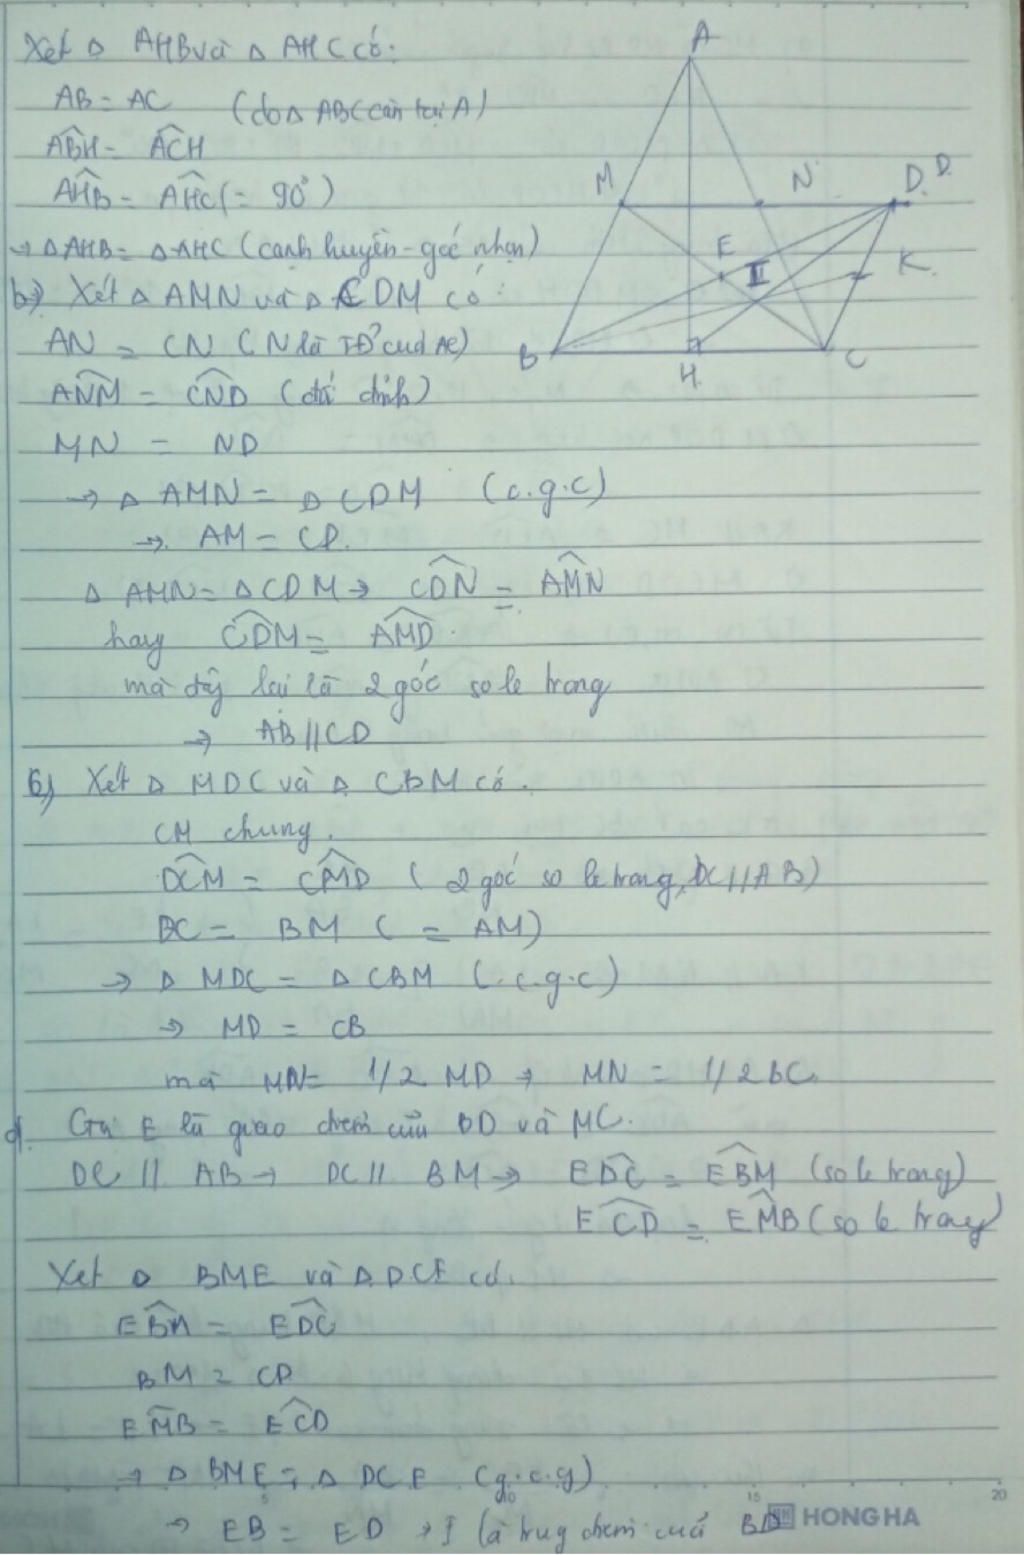 Xét Δ AHB và Δ AHC có:
AB = AC (do Δ ABC cân tại A)
ABH = ACH
AHB = AHC (= 90°)
→ Δ AHB = Δ AHC (cạnh huyền - góc nhọn)
b) Xét Δ AMN và Δ CDM có:
AN = CN (N là TĐ của AC)
ANM = CND (đối đỉnh)
MN = ND
→ Δ AMN = Δ CDM (c.g.c)
→ AM = CD.
Δ AMN = Δ CDM → CDN = AMN
hay CDM = AMD.
mà đây lại là 2 góc so le trong
→ AB // CD
Xét Δ MDC và Δ CBM có.
CM chung.
DCM = CMD (2 góc so le trong, DC // AB)
DC = BM (= AM)
→ Δ MDC = Δ CBM (c.g.c)
→ MD = CB
mà MN = 1/2 MD → MN = 1/2 BC.
d. Gọi E là giao điểm của BD và MC.
DC // AB → DC // BM → EDC = EBM (so le trong)
ECD = EMB (so le trong)
Xét Δ BME và Δ DCE có.
EBM = EDC
BM = CD
EMB = ECD
→ Δ BME = Δ DCE (g.c.g)
→ EB = ED → I là trung điểm của BD
A
M N D. D.
E I K.
B H. C
5 10 15 20
HONG HA